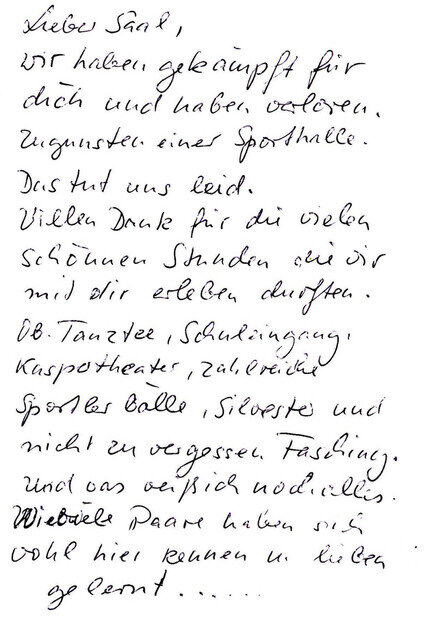 Lieber Saal,
wir haben gekämpft für
dich und haben verloren.
zugunsten einer Sporthalle.
Das tut uns leid.
Villen Dank für die vielen
schönnen Stunden die wir
mit dir erleben durften.
Ob. Tanztee, Schuleingang,
Kaspotheater, zahlreiche
Sportler Bälle, Silvester und
nicht zu vergessen Fasching.
und was weiß ich noch alles.
Wieviele Paare haben sich
wohl hier kennen u. lieben
gelernt.......